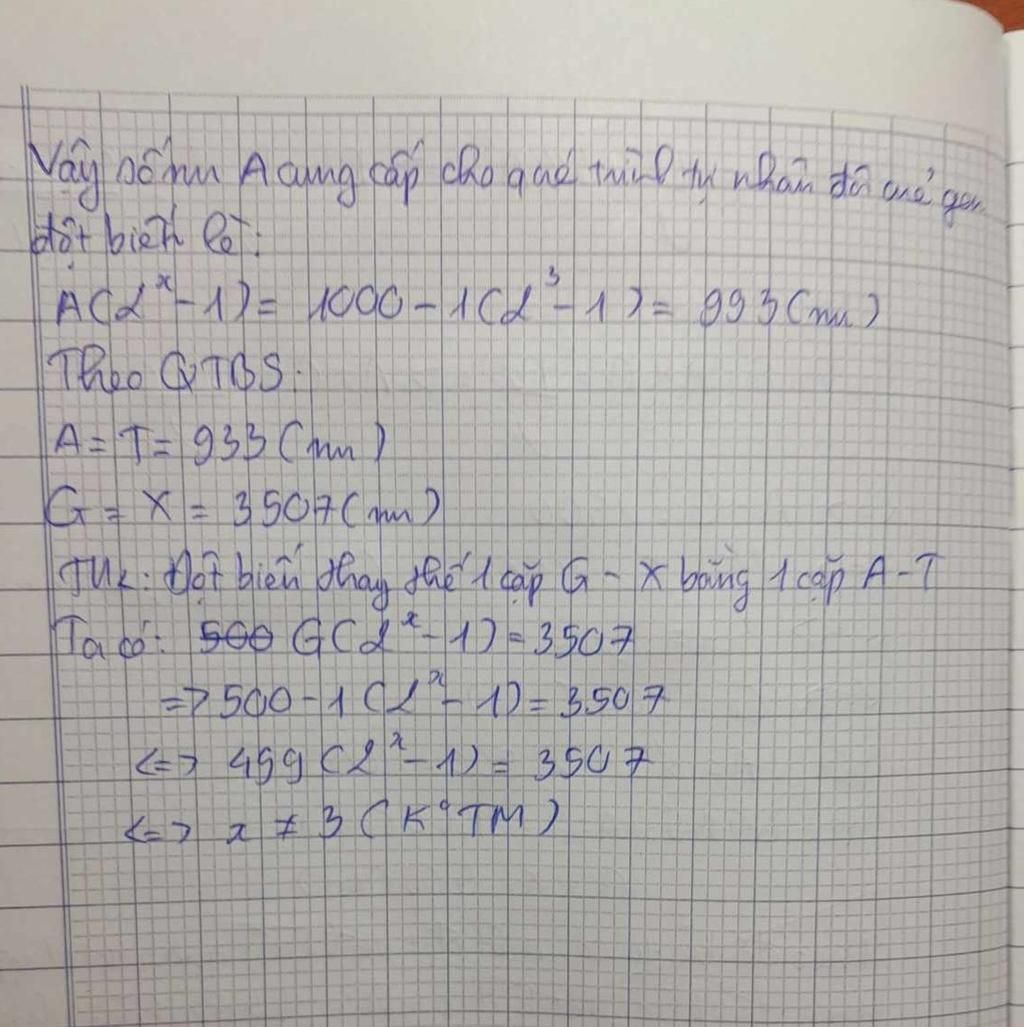 Vậy số nu A cung cấp cho quá trình tự nhân đôi của gen
đột biến là:
A(2^x - 1) = 1000 - 1(2^3 - 1) = 993 (nu)
Theo QTBS:
A = T = 933 (nu)
G = X = 3507 (nu)
TH2: Đột biến thay thế 1 cặp G - X bằng 1 cặp A - T
Ta có: 500 G(2^x - 1) = 3507
=> 500 - 1 (2^x - 1) = 3507
<=> 499 (2^x - 1) = 3507
<=> x ≠ 3 (K° TM)